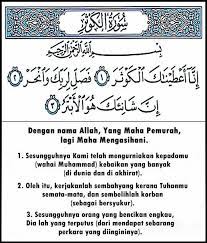 سُورَةُ الْكَوْثَرِ
بِسْمِ اللَّهِ الرَّحْمَٰنِ الرَّحِيمِ
إِنَّا أَعْطَيْنَاكَ الْكَوْثَرَ ﴿١﴾ فَصَلِّ لِرَبِّكَ وَانْحَرْ ﴿٢﴾
إِنَّ شَانِئَكَ هُوَ الْأَبْتَرُ ﴿٣﴾
Dengan nama Allah, Yang Maha Pemurah,
lagi Maha Mengasihani.
1. Sesungguhnya Kami telah mengurniakan kepadamu
(wahai Muhammad) kebaikan yang banyak
(di dunia dan di akhirat).
2. Oleh itu, kerjakanlah sembahyang kerana Tuhanmu
semata-mata, dan sembelihlah korban
(sebagai bersyukur).
3. Sesungguhnya orang yang bencikan engkau,
Dia lah yang terputus (dari mendapat sebarang
perkara yang diingininya).